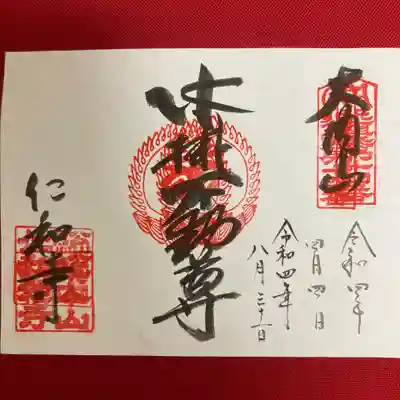 大内山
令和四年
四月四日
令和四年
八月三十一日
水掛不動尊
仁和寺